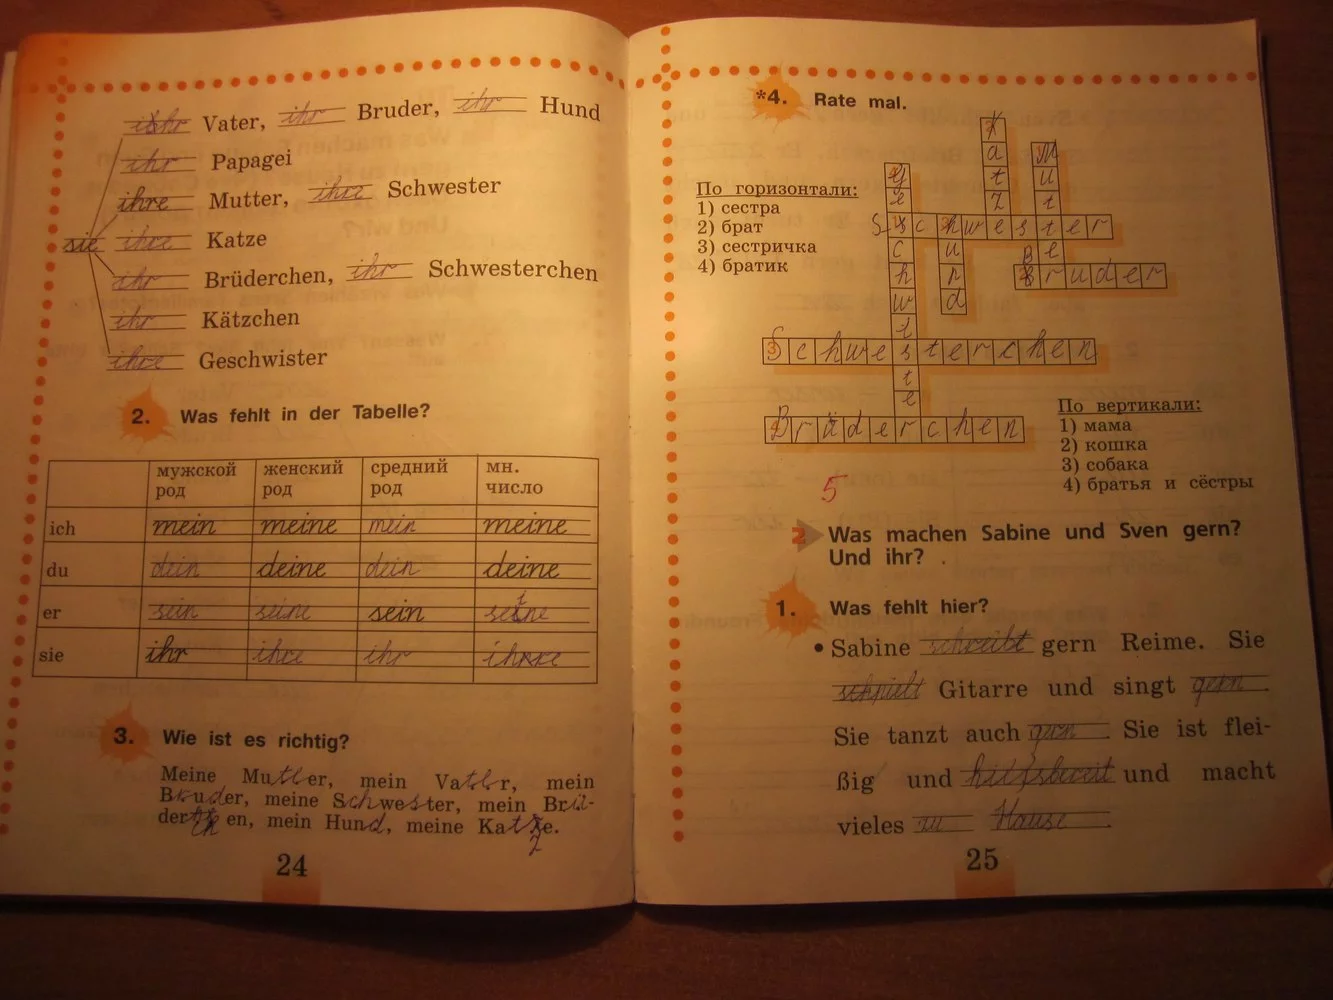 ihr Vater, ihr Bruder, ihr Hund
ihr Papagei
ihre Mutter, ihre Schwester
sie ihre Katze
ihr Brüderchen, ihr Schwesterchen
ihr Kätzchen
ihre Geschwister
2. Was fehlt in der Tabelle?
мужской род женский род средний род мн. число
ich mein meine mein meine
du dein deine dein deine
er sein seine sein seine
sie ihr ihre ihr ihre
3. Wie ist es richtig?
Meine Mutter, mein Vater, mein
Bruder, meine Schwester, mein Brü-
derchen, mein Hund, meine Katze.
24
*4. Rate mal.
По горизонтали:
1) сестра
2) брат
3) сестричка
4) братик
Katze
Mutte
Hund
Schwester
Bruder
3 Schwesterchen
Brüderchen
По вертикали:
1) мама
2) кошка
3) собака
4) братья и сёстры
5
2 Was machen Sabine und Sven gern?
Und ihr?
1. Was fehlt hier?
• Sabine schreibt gern Reime. Sie
schpielt Gitarre und singt gern.
Sie tanzt auch gern. Sie ist flei-
ßig und hilfsbereit und macht
vieles zu Hause.
25